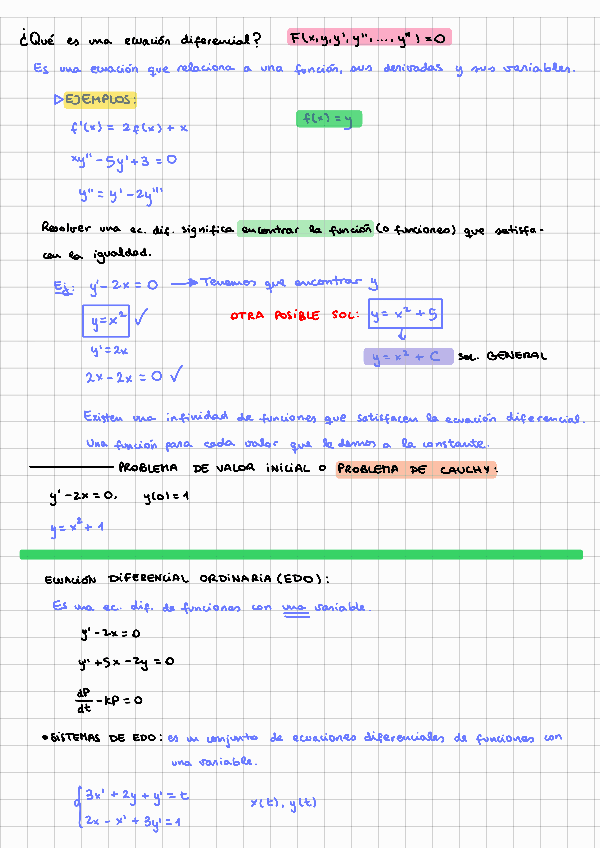 ¿Qué es una ecuación diferencial? F(x,y,y',y'',...,yⁿ)=0
Es una ecuación que relaciona a una función, sus derivadas y sus variables.
▷EJEMPLOS:
f'(x) = 2f(x) + x f(x) = y
xy'' - 5y' + 3 = 0
y'' = y' - 2y'''
Resolver una ec. dif. significa encontrar la función (o funciones) que satisfa-
cen la igualdad.
Ej: y' - 2x = 0 → Tenemos que encontrar y
y = x² ✓ OTRA POSIBLE SOL: y = x² + 5
↓
y' = 2x y = x² + C SOL. GENERAL
2x - 2x = 0 ✓
Existen una infinidad de funciones que satisfacen la ecuación diferencial.
Una función para cada valor que le demos a la constante.
PROBLEMA DE VALOR INICIAL O PROBLEMA DE CAUCHY:
y' - 2x = 0, y(0) = 1
y = x² + 1
ECUACIÓN DIFERENCIAL ORDINARIA (EDO):
Es una ec. dif. de funciones con una variable.
y' - 2x = 0
y'' + 5x - 2y = 0
dP/dt - kP = 0
•SISTEMAS DE EDO: es un conjunto de ecuaciones diferenciales de funciones con
una variable.
{3x' + 2y + y' = t x(t), y(t)
2x - x' + 3y' = 1